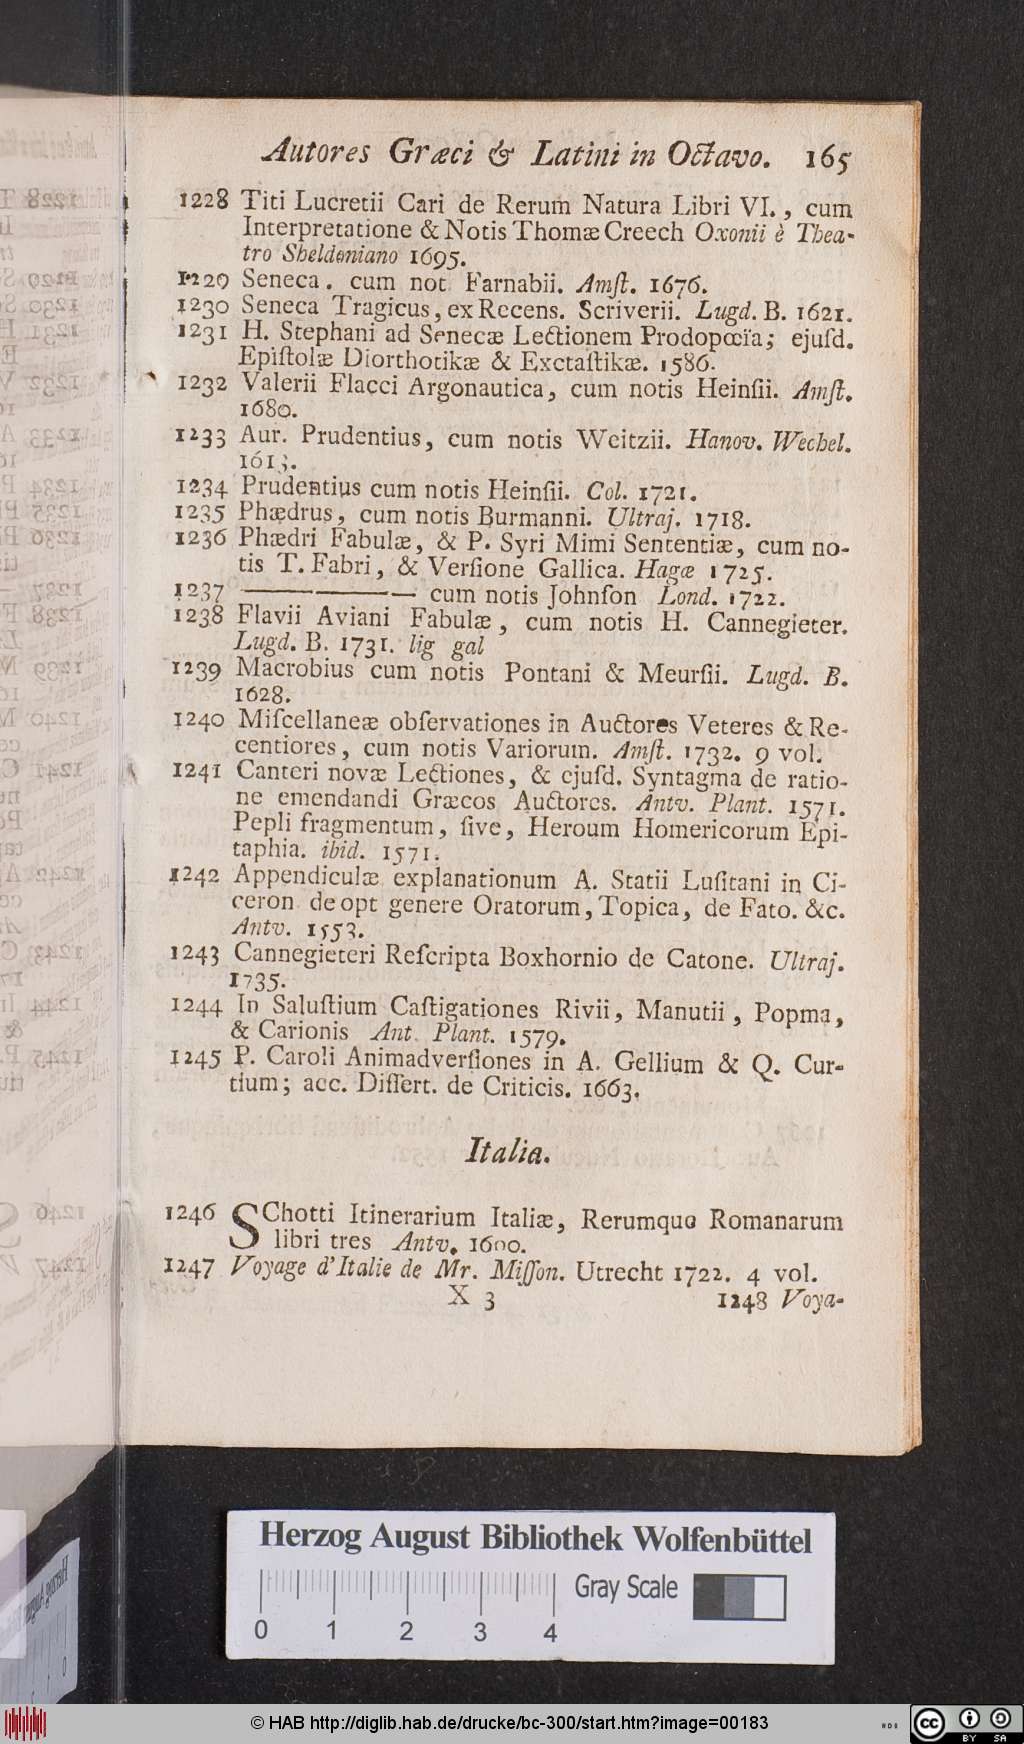 Autores Græci & Latini in Octavo. 165
1228 Titi Lucretii Cari de Rerum Natura Libri VI., cum
Interpretatione & Notis Thomæ Creech Oxonii è Thea-
tro Sheldoniano 1695.
1229 Seneca. cum not Farnabii. Amſt. 1676.
1230 Seneca Tragicus, ex Recens. Scriverii. Lugd. B. 1621.
1231 H. Stephani ad Senecæ Lectionem Prodopœïa; ejuſd.
Epiſtolæ Diorthotikæ & Exctaſtikæ. 1586.
1232 Valerii Flacci Argonautica, cum notis Heinſii. Amſt.
1680.
1233 Aur. Prudentius, cum notis Weitzii. Hanov. Wechel.
1613.
1234 Prudentius cum notis Heinſii. Col. 1721.
1235 Phædrus, cum notis Burmanni. Ultraj. 1718.
1236 Phædri Fabulæ, & P. Syri Mimi Sententiæ, cum no-
tis T. Fabri, & Verſione Gallica. Hagæ 1725.
1237 ——— cum notis Johnſon Lond. 1722.
1238 Flavii Aviani Fabulæ, cum notis H. Cannegieter.
Lugd. B. 1731. lig gal
1239 Macrobius cum notis Pontani & Meurſii. Lugd. B.
1628.
1240 Miſcellaneæ obſervationes in Auctores Veteres & Re-
centiores, cum notis Variorum. Amſt. 1732. 9 vol.
1241 Canteri novæ Lectiones, & ejuſd. Syntagma de ratio-
ne emendandi Græcos Auctores. Antv. Plant. 1571.
Pepli fragmentum, ſive, Heroum Homericorum Epi-
taphia. ibid. 1571.
1242 Appendiculæ explanationum A. Statii Luſitani in Ci-
ceron de opt genere Oratorum, Topica, de Fato. &c.
Antv. 1553.
1243 Cannegieteri Reſcripta Boxhornio de Catone. Ultraj.
1735.
1244 In Saluſtium Caſtigationes Rivii, Manutii, Popma,
& Carionis Ant. Plant. 1579.
1245 P. Caroli Animadverſiones in A. Gellium & Q. Cur-
tium; acc. Diſſert. de Criticis. 1663.
Italia.
1246 SChotti Itinerarium Italiæ, Rerumque Romanarum
libri tres Antv. 1600.
1247 Voyage d'Italie de Mr. Miſſon. Utrecht 1722. 4 vol.
X 3 1248 Voya-
Herzog August Bibliothek Wolfenbüttel
Gray Scale
0 1 2 3 4
© HAB http://diglib.hab.de/drucke/bc-300/start.htm?image=00183
cc BY SA